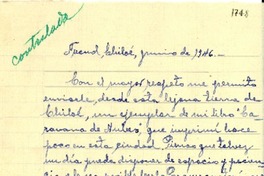 contestada
1748
Ancud, Chiloé, junio de 1946.-
Con el mayor respeto me permito
enviarle, desde esta lejana tierra de
Chiloé, un ejemplar de mi libro Ca-
ravana de Nubes, que imprimí hace
poco en esta ciudad. Pienso que tal vez
un día pueda disponer de espacio y